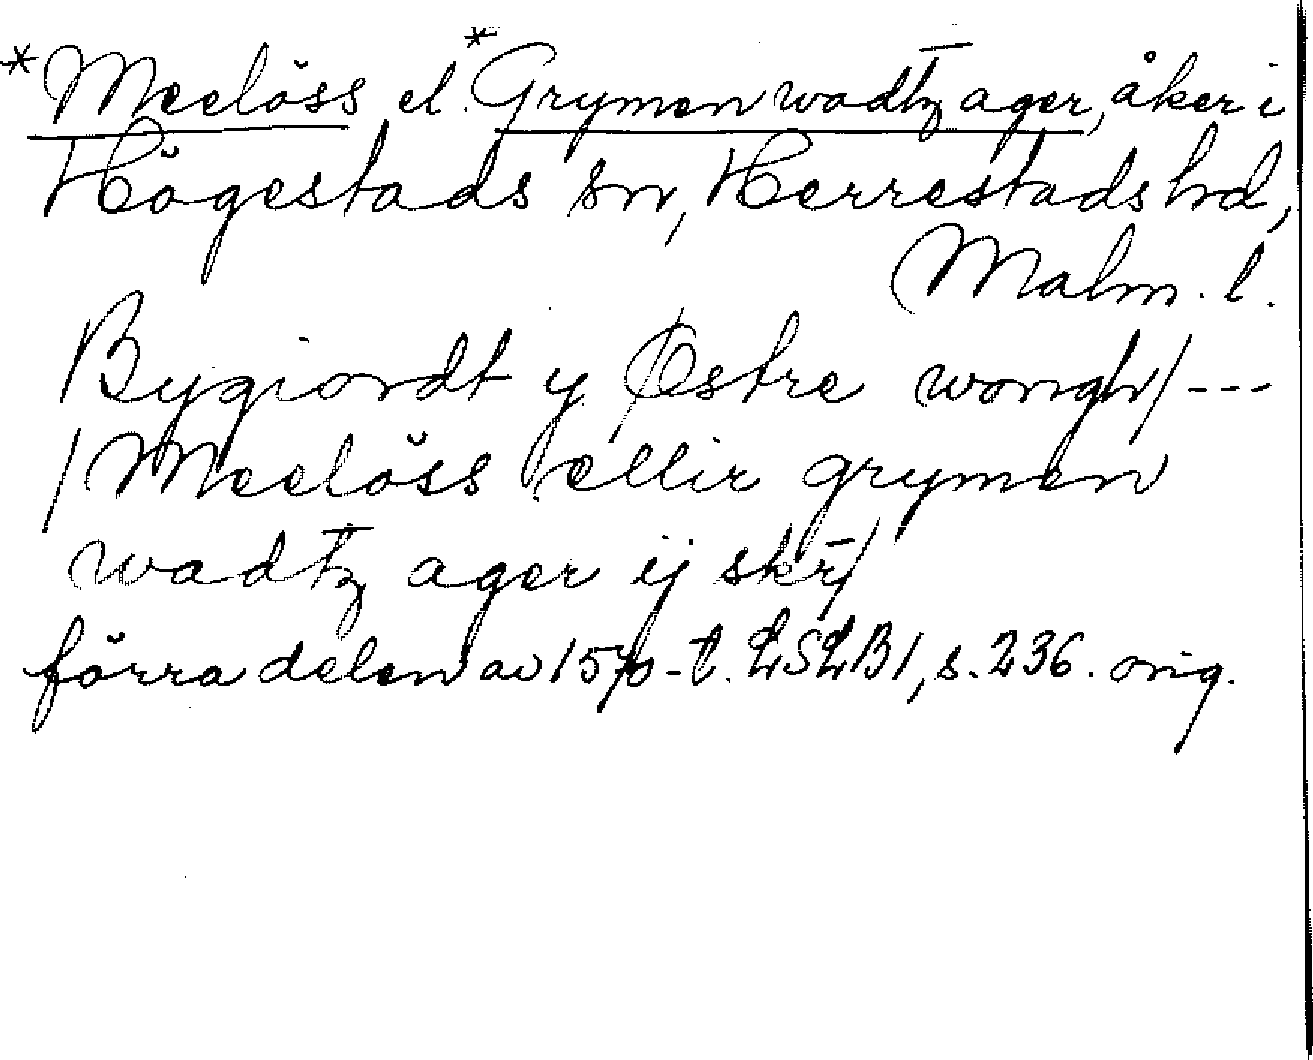 *Meelöss el. *Grymen wadtz ager, åker i
Högestads sn, Herrestads hd,
Malm. l.
Bygiordt y Østre wongh/ ---
/Meelöss ellir grymen
wadtz ager ij skr̄/
förra delen av 1570-t. LSLB1, s. 236. orig.